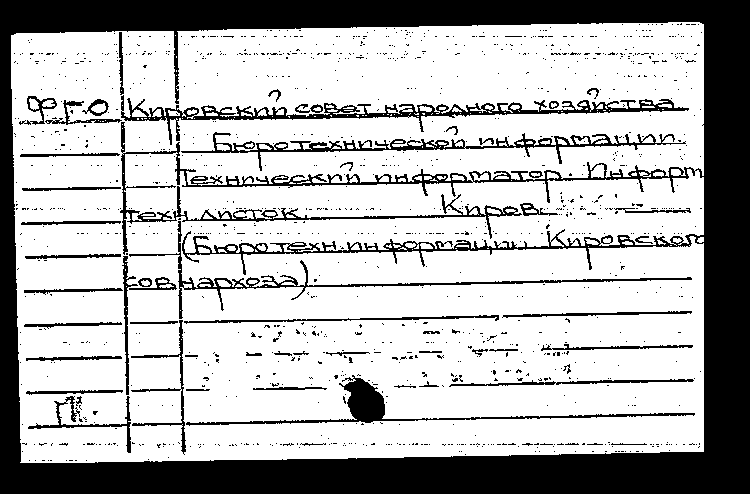 ФГ.О Кировский совет народного хозяйства
Бюро технической информации.
Технический информатор. Информ
техн. листок. Киров.
(Бюро техн. информации Кировского
совнархоза).
П.